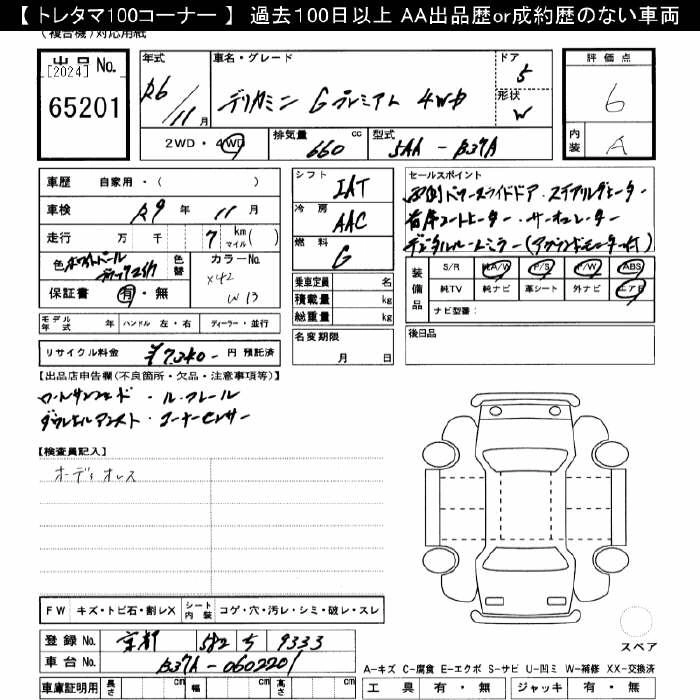 【 トレタマ100コーナー 】 過去100日以上 AA出品歴or成約歴のない車両
(複合機)対応用紙
出品 No. [2024]
65201
年式 R6/11月
車名・グレード デリカミニ Gプレミアム 4WD
ドア 5
形状 W
評価点 6
内装 A
2WD・4WD 排気量 660 cc 型式 5AA-B37A
車歴 自家用・( )
車検 R9年 11月
走行 万 千 7 km マイル ( )
色 ホワイトパール 色替 カラーNo. X42
ブラックマイカ W13
保証書 有・無
シフト IAT
冷房 AAC
燃料 G
乗車定員 名
積載量 kg
総重量 kg
セールスポイント
両側パワースライドドア・ステアリングヒーター
前席シートヒーター・サーキュレーター
デジタルルームミラー(アラウンドモニター付)
装備品 S/R 純A/W P/S P/W ABS
純TV 純ナビ 革シート 外ナビ エアB
ナビ型番:
モデル年式 年 ハンドル 左・右 ディーラー・並行
名変期限 月 日
後日品
リサイクル料金 ¥7,340- 円 預託済
【出品店申告欄(不良箇所・欠品・注意事項等)】
ルーフレール
コーナーセンサー
【検査員記入】
オーディオレス
FW キズ・トビ石・割レX シート内装 コゲ・穴・汚レ・シミ・破レ・スレ
登録 No. 京都 582 ち 9333
車台 No. B37A-0602201
車庫証明用 長さ cm 幅 cm 高さ cm
スペア
A-キズ C-腐食 E-エクボ S-サビ U-凹ミ W-補修 XX-交換済
工具 有・無 ジャッキ 有・無